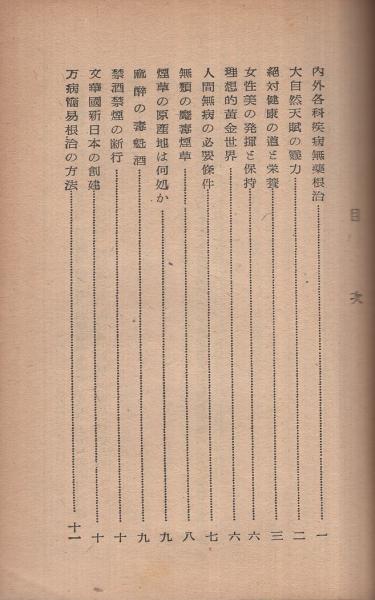 目次
内外各科疾病無藥根治……一
大自然天賦の靈力……二
絕対健康の道と栄養……三
女性美の発揮と保持……六
理想的黃金世界……六
人間無病の必要條件……七
無類の魔毒煙草……八
煙草の原產地は何処か……九
麻醉の毒魁酒……九
禁酒禁煙の断行……十
文華國新日本の創建……十
万病簡易根治の方法……十一